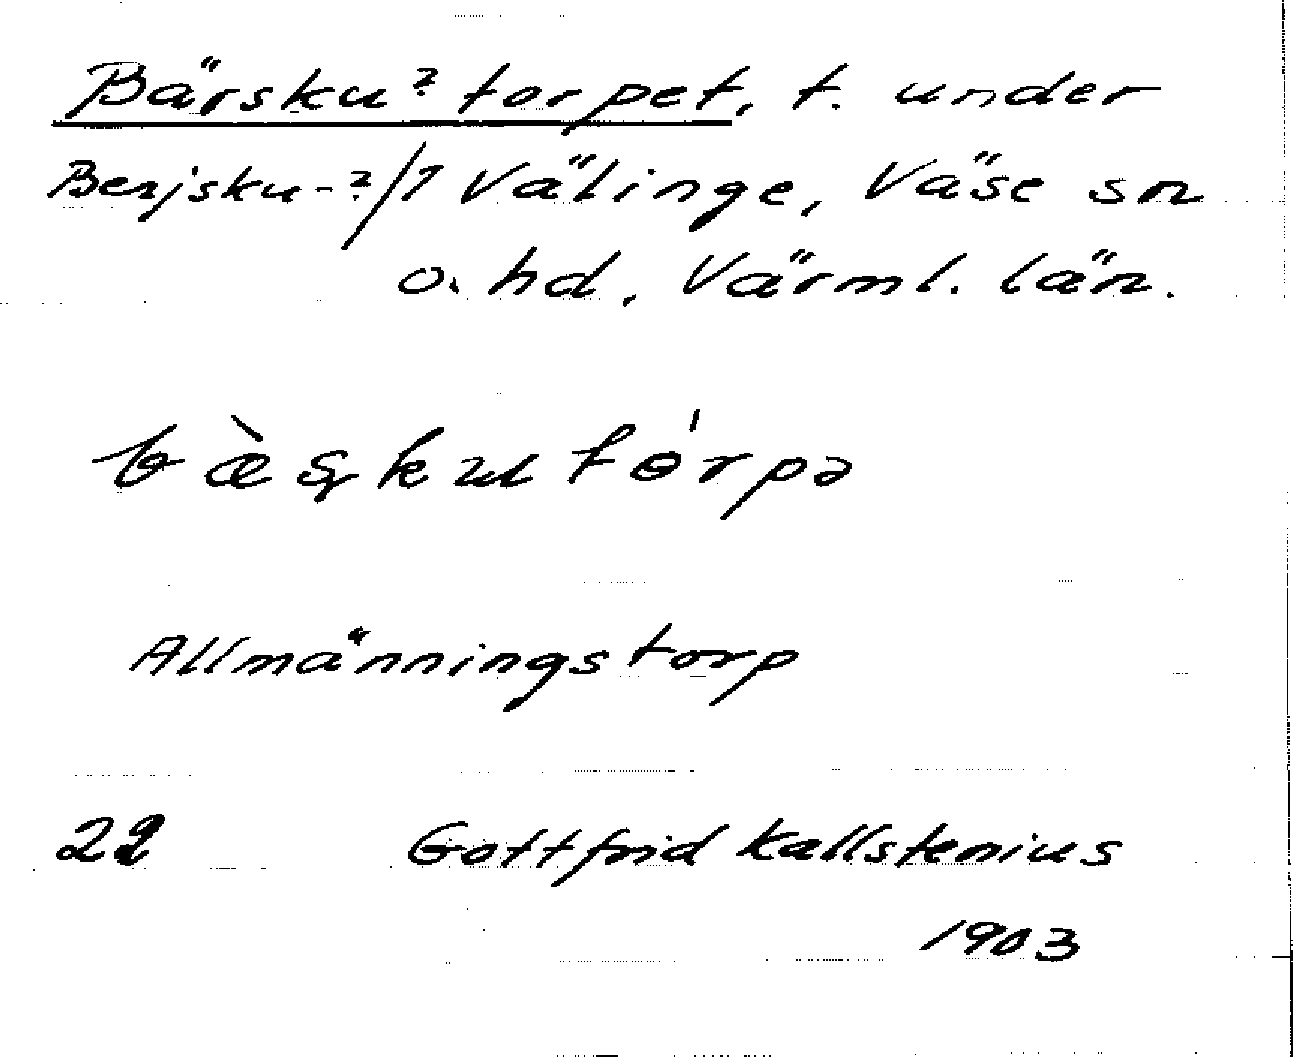 Bärsku? torpet, t. under
Berjsku-?/1 Välinge, Väse sn
o. hd, Värml. län.
bæ̀ʂkutórpə
Allmänningstorp
22 Gottfrid Kallstenius
1903